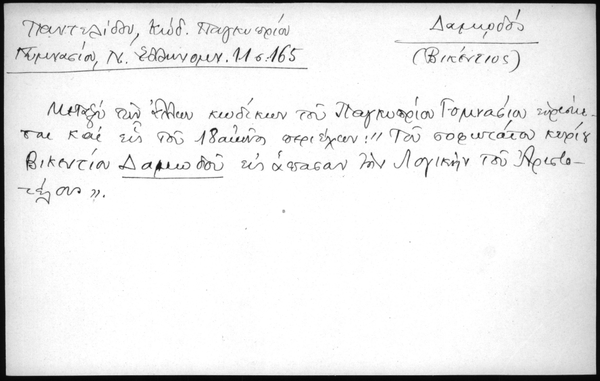 Παντελίδου, Κώδ. Παγκυπρίου
Γυμνασίου, Ν. Ἑλληνομν. 11 σ. 165
Δαμοδός
(Βικέντιος)
Μεταξύ τῶν ἄλλων κωδίκων τοῦ Παγκυπρίου Γυμνασίου εὑρίσκε-
ται καί εἷς τοῦ 18 αἰῶνος περιέχων: "Τοῦ σοφωτάτου κυρίου
Βικεντίου Δαμοδοῦ εἰς ἅπασαν τὴν Λογικὴν τοῦ Ἀριστο-
τέλους".